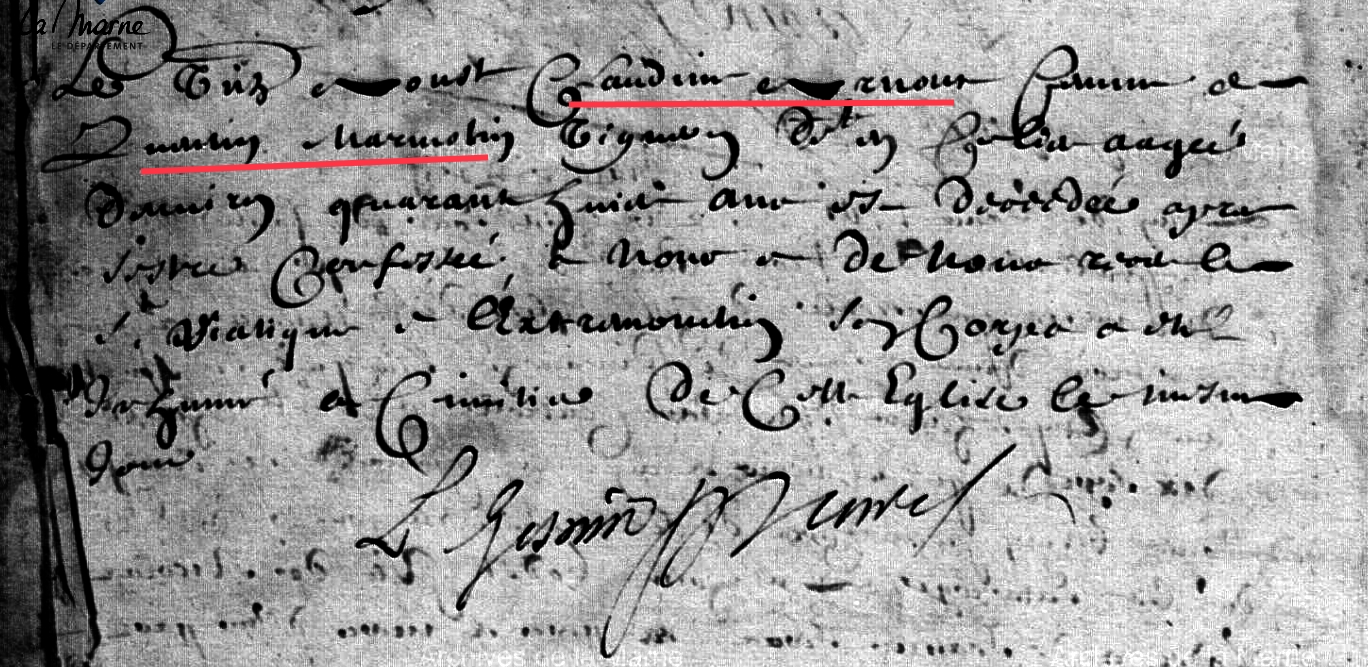 La Marne
LE DÉPARTEMENT
Le dix Aoust Claudine Arnout femme de
Quentin Marmotin vigneron aagée
d'environ quarante huict ans est décédée apres
s'estre confessée à nous et de nous receu le
St Viatique et l'extremonction son corps a esté
inhumé au Cimetiere de cette Eglise le mesme
jour
Archives de la Marne
Archives de la Marne